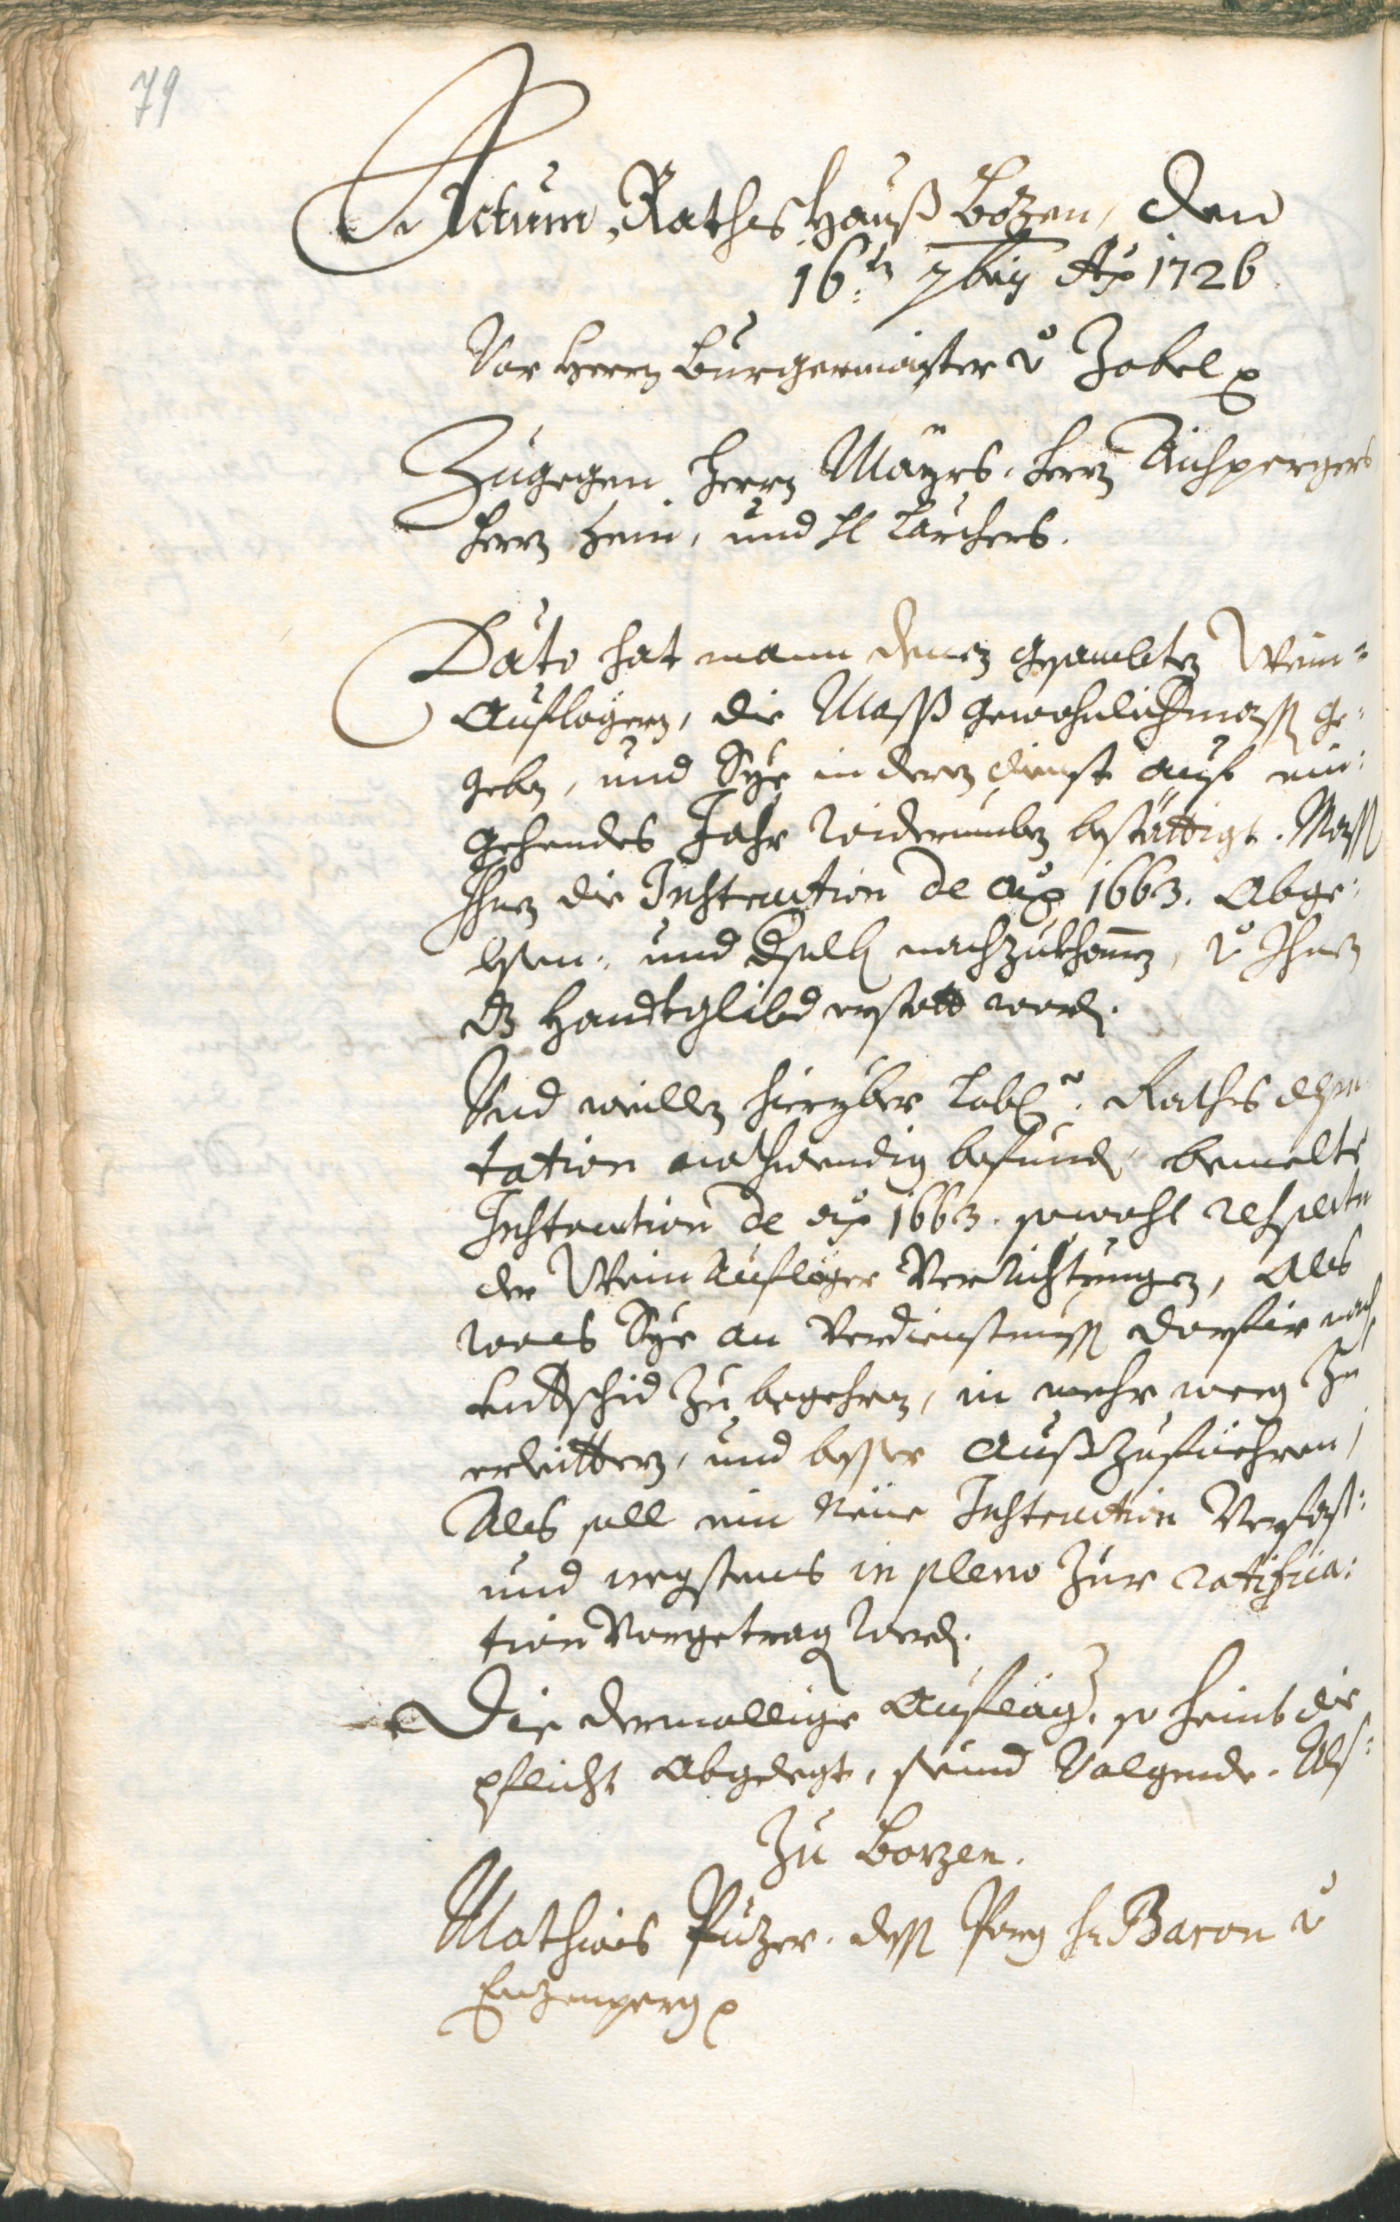 79
Actum, Raths Hauß Bozen, den
16:tn 7bris Ao 1726
Vor Herrn Burgermaister v Zobel
Zugegen Herrn Mayrs, Herrn Aichpergers
Herrn Hein, und H Larchers.
Dato hat mann denen gesambten Wein=
Auflögern, die Mass gewohnlichermass ge=
geben, und Sye in deren dienst auf ein=
gehendes Jahr widerumben bestättigt. Mass
Ihnen die Instruction de ao 1663. Abge=
lesen, und nachzukhommen, v Ihnen
dz Handtglibd erstatt word.
Und weillen hieryber Lobl. Raths depu
tation nothwendig befund, bemelte
Instruction de ao 1663. sowohl respectu
der Wein Aufløger Verrichtungen, als
was Sye an Verdienstnuss darfür nach
undtschid zu begehren, in mehr weeg zu
erleittern, und besser Außzufüehren,
Als soll ein neue Instruction Verfast=
und negstens in pleno zur ratifica=
tion Vorgetrag werd.
Die dermallige Aufleger, so heint die
pflicht Abgelegt, seind Volgende. Als=
Zu Bozen.
Mathias Puzer. dess Porg H Baron v
Enzenperg